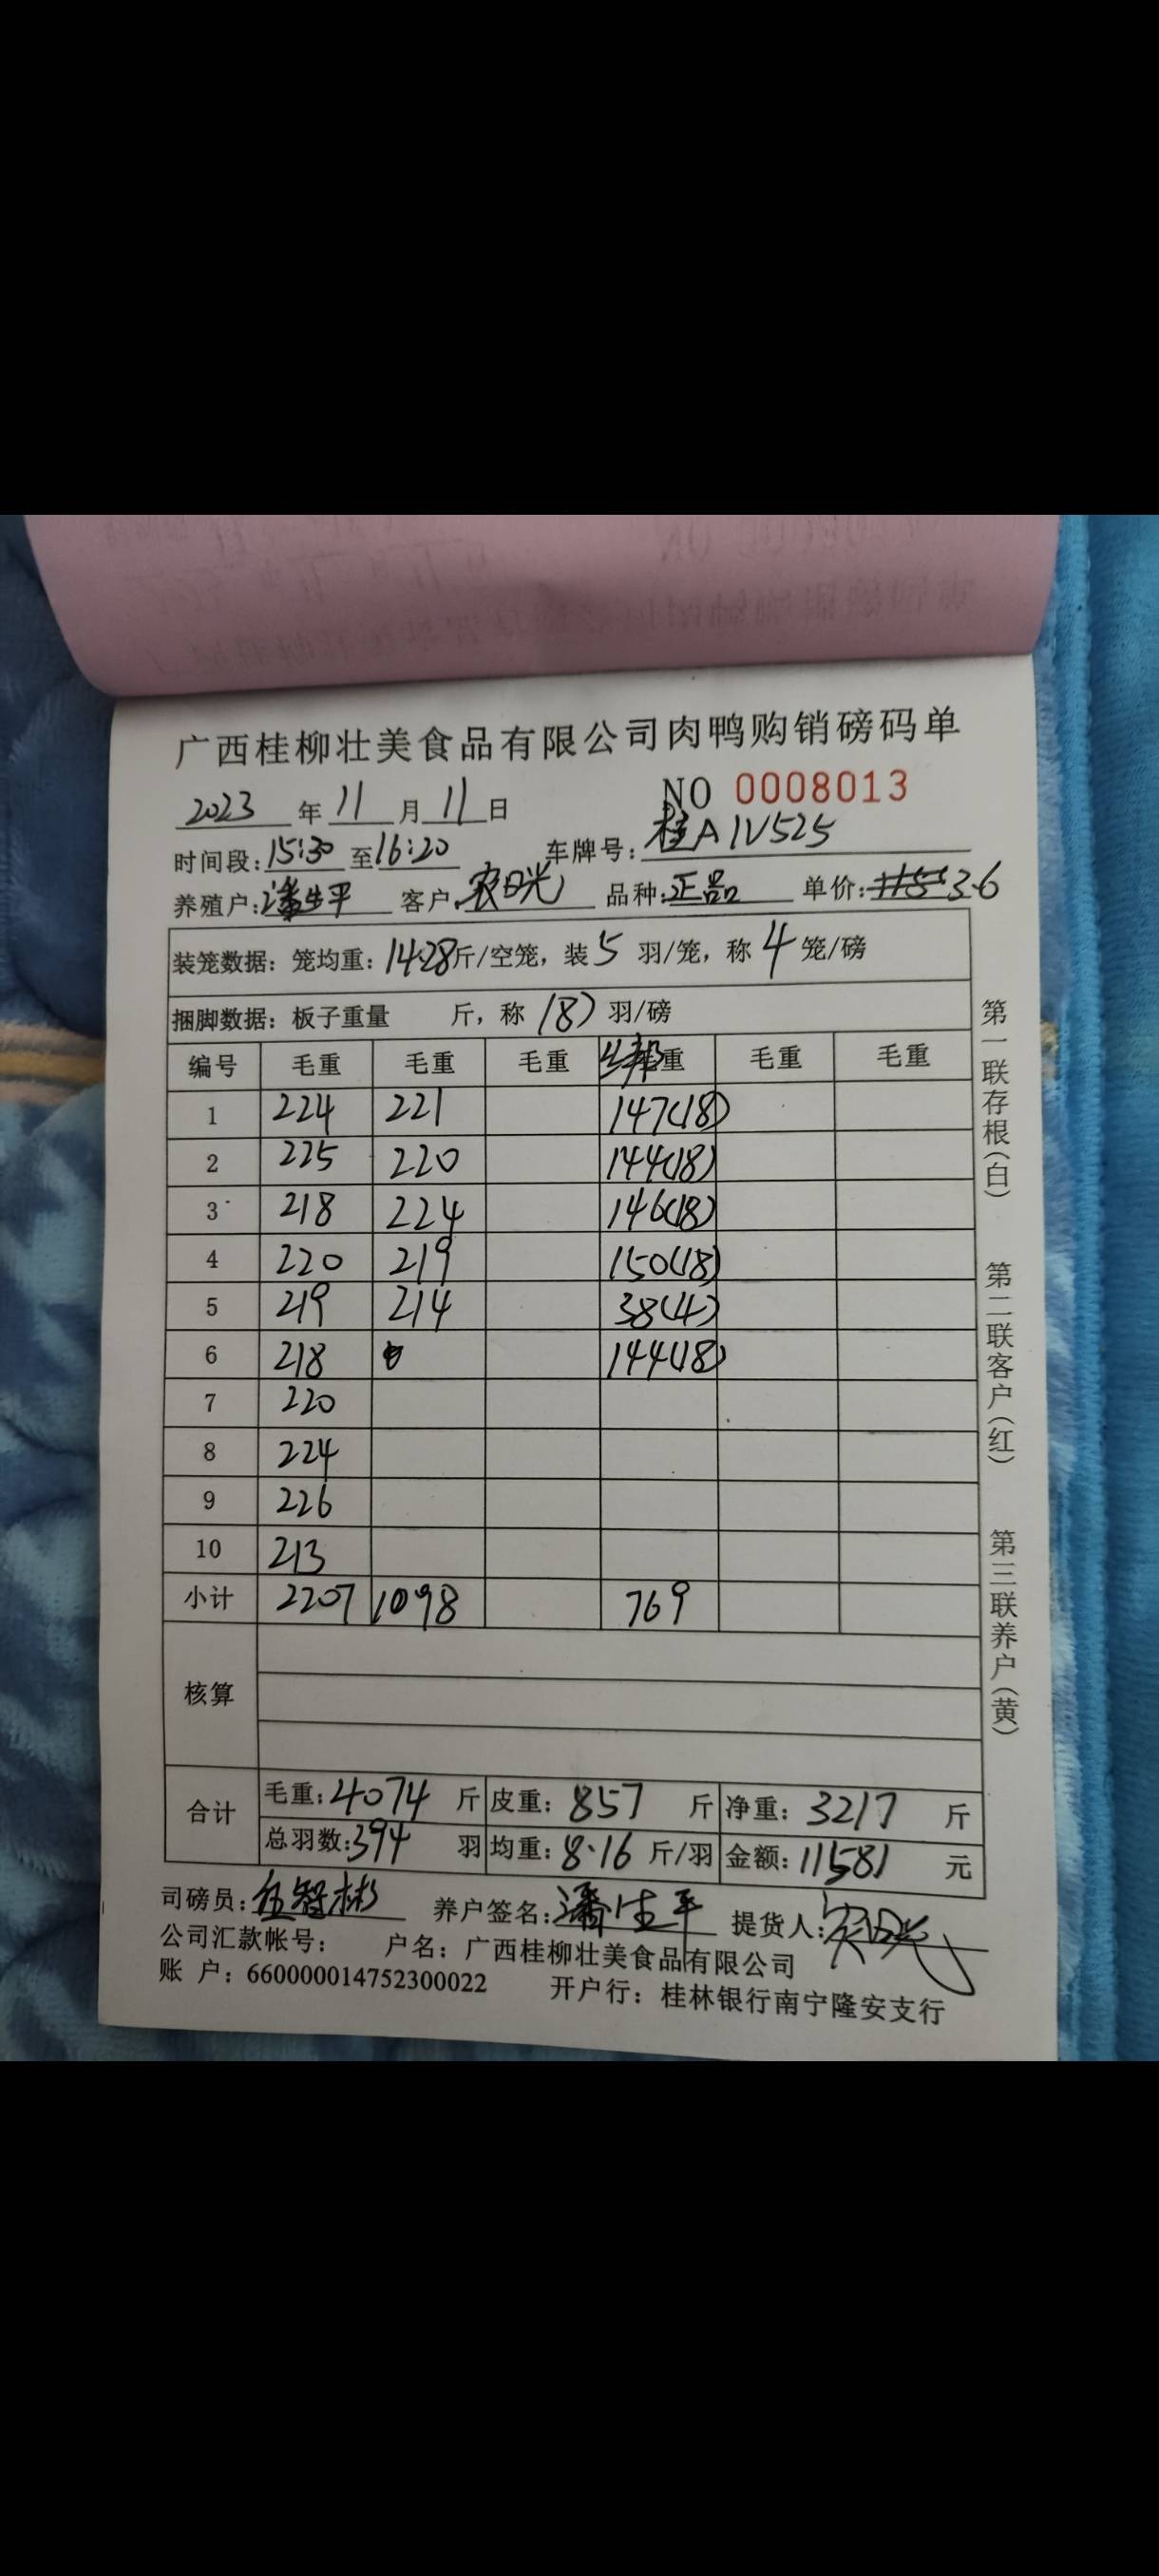 广西桂柳壮美食品有限公司肉鸭购销磅码单
2023年11月11日 NO 0008013
时间段:15:30至16:20 车牌号:桂A1V525
养殖户:潘生平 客户:农日光 品种:正品 单价:3.6
装笼数据: 笼均重: 14.28斤/空笼, 装5羽/笼, 称4笼/磅
捆脚数据: 板子重量 斤, 称18羽/磅
编号 毛重 毛重 毛重 重 毛重 毛重
1 224 221 147(18)
2 225 220 144(18)
3 218 224 146(18)
4 220 219 150(18)
5 219 214 38(4)
6 218 144(18)
7 220
8 224
9 226
10 213
小计 2207 1098 769
核算
合计 毛重: 4074 斤 皮重: 857 斤 净重: 3217 斤
总羽数: 394 羽 均重: 8.16 斤/羽 金额: 11581 元
司磅员: 伍智彬 养户签名: 潘生平 提货人: 农日光
公司汇款帐号: 户名: 广西桂柳壮美食品有限公司
账 户: 660000014752300022 开户行: 桂林银行南宁隆安支行
第一联存根(白) 第二联客户(红) 第三联养户(黄)